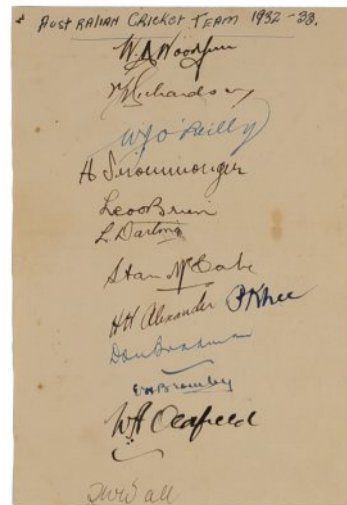 AUSTRALIAN CRICKET TEAM 1932-33.
W.M. Woodfull
V Richardson
W J O'Reilly
H Ironmonger
Leo O'Brien
L. Darling
Stan McCabe
H H Alexander P K Lee
Don Bradman
E H Bromley
W A Oldfield
T W Wall